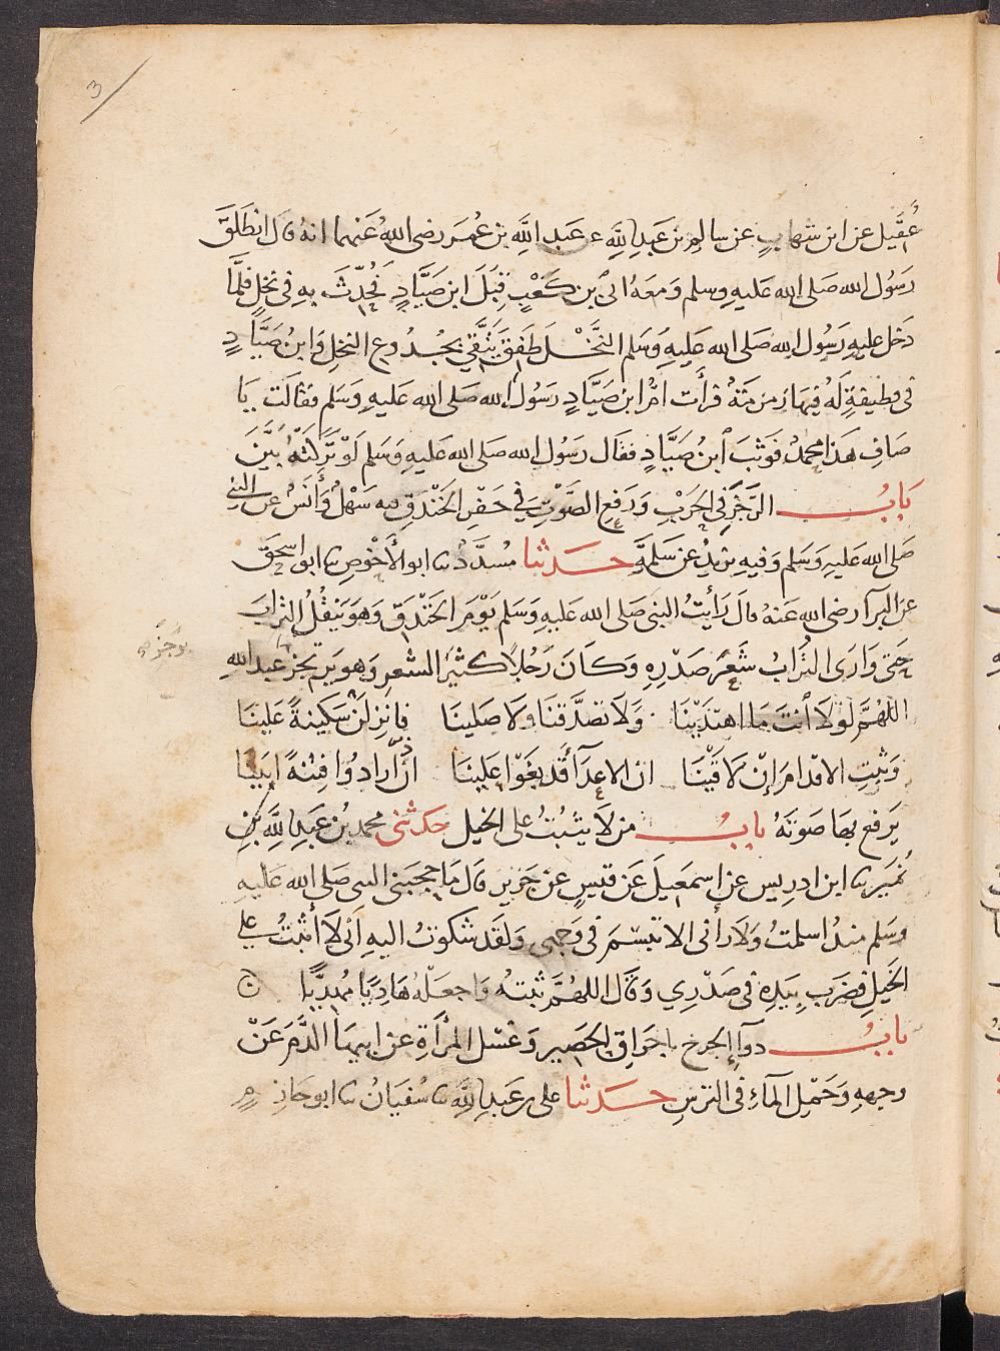 3
عُقَيل عن ابن شهابٍ عن سالم بن عَبدِ اللّهِ عن عَبدِ اللَّهِ بن عُمَر رضى اللهُ عَنهما انهُ قال انطَلَقَ
رَسُول الله صَلى الله عَليهِ وسلم وَمعَهُ اُبى بن كَعْبٍ قِبَلَ ابن صَيَّادٍ فحُدِّثَ بهِ فى نخلٍ فلمَّا
دَخل عليهِ رَسُول الله صَلى الله عَليهِ وَسَلم النَّخْـل طَفِقَ يَتَّقى بجُـذُوع النخلِ وَابنُ صَيَّادٍ
فى قطيفةٍ لَهُ فِيهَا رَمرَمَةٌ فَرأَت امُّ ابن صَيَّادٍ رَسُولَ الله صَلى الله عَليهِ وَسَلم فقالَت يَا
صَافِ هَذا محمدٌ فوَثبَ ابنُ صَيَّادٍ فقال رَسُول الله صَلى الله عَليهِ وَسَلم لَوْ تَرَكتْهُ بَيَّنَ
بَابُ الرَّجَزِ فى الحَرْبِ وَرَفعِ الصَّوْتِ فى حَفْرِ الخَنْدَقِ فيه سَهْلٌ وَأنَسٌ عن النبى
صَلى الله عَليهِ وَسَلم وَفيهِ يزيدُ عن سَلمَةَ حَـدثنا مُسدَّدٌ نا ابو الأَحْوصِ نا ابو اسحَق
عن البرآ رضى الله عَنهُ قالَ رَأيتُ النبى صَلى الله عَليهِ وَسَلم يَوْمَ الخَنْدَقِ وَهوَ يَنقُلُ الترابَ
حَتى وَارَى التُّرَابُ شَعَرَ صَدْرِهِ وَكانَ رَجُلاً كثيرَ الشعرِ وَهوَ يرتجز برجز عبدالله
اللهُمَّ لَوْلاَ أَنتَ مَا اهتَدَيْنَا وَلاَ تصَدَّقنَا وَلاَ صَلينَا فانزِلَنْ سَكينةً عَلينَا
وَثبِّتِ الاقدامَ إِنْ لاَقَيْنَا ان الاعدَآ قَد بَغَوْا عَلينَا اذَا ارادُوا فِتنةً ابَينَا
يَرفع بهَا صَوتَهُ بابُ من لاَ يَثبُتُ على الخيل حَدثنى محمد بن عَبدِ اللّهِ بن
نُمَير نا ابن ادريس عن إِسمَعِيلَ عَن قيسٍ عن جَرير قال مَا حجبَنى النبى صَلى الله عَليهِ
وسَلم منذُ اسلمتُ وَلاَ رآنى الا تبسَّمَ فى وَجهى وَلقَد شكوتُ اليهِ اَنى لاَ أثبتُ على
الخَيلِ فضَرَب بِيَدِه فى صَدْرِي وَقال اللهُمَّ ثبتهُ وَاجعَلْهُ هَادِيًا مَهديًّا
بابُ دوآء الجرح باحراق الحَصير وَغسْل المرْأةِ عن ابيهَا الدَّمَ عَنْ
وجههِ وَحَمْلِ الماءِ فى الترسِ حَـدثنا على بن عَبدِ اللّهِ نا سُفيانُ نا ابو حَازمٍ